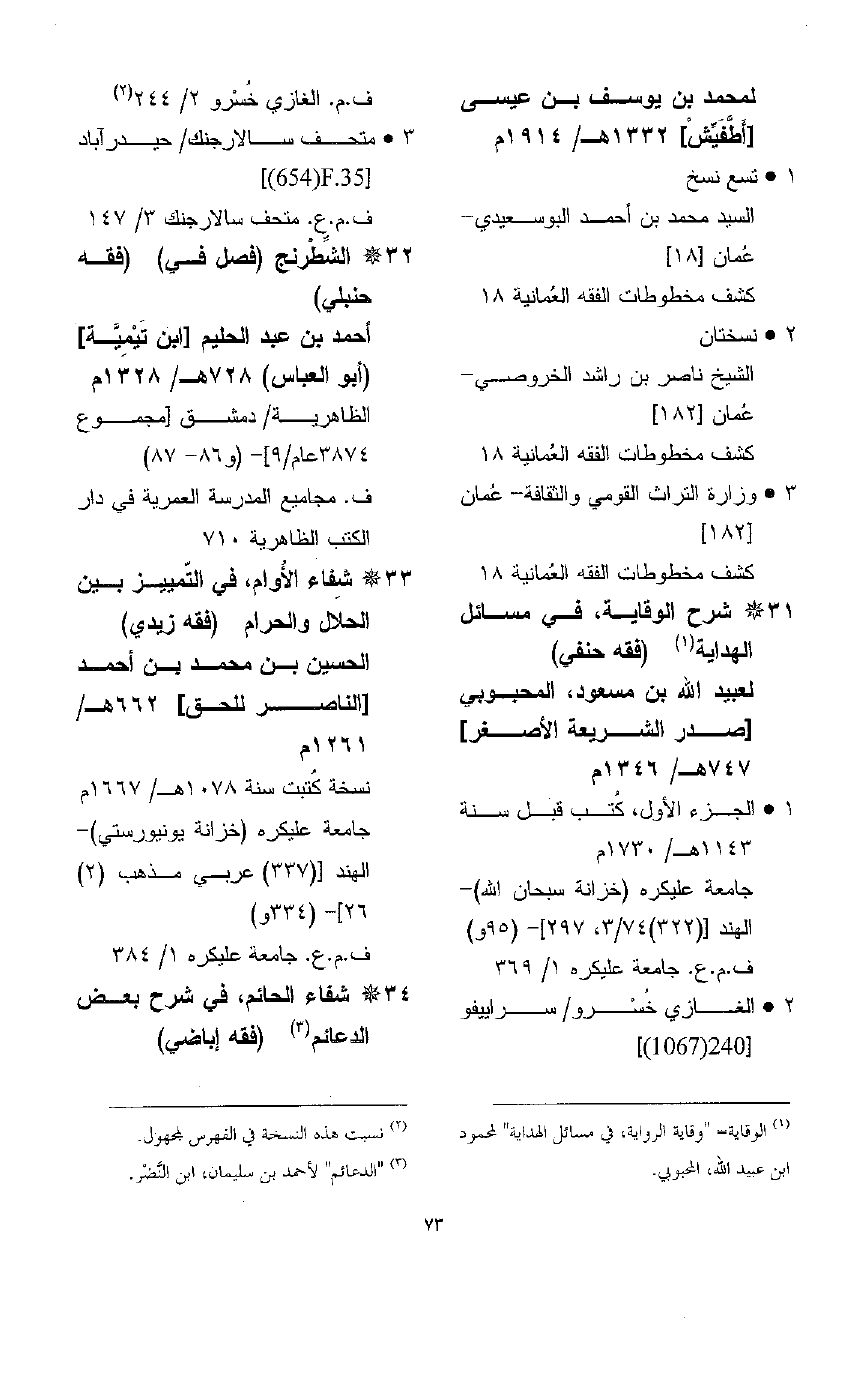 لمحمد بن يوسف بن عيسى
[أَطَّفَيِّشْ] ١٣٣٢هـ/ ١٩١٤م
١ • تسع نسخ
السيد محمد بن أحمد البوسعيدي-
عُمان [١٨]
كشف مخطوطات الفقه العُمانية ١٨
٢ • نسختان
الشيخ ناصر بن راشد الخروصي-
عُمان [١٨٢]
كشف مخطوطات الفقه العُمانية ١٨
٣ • وزارة التراث القومي والثقافة- عُمان
[١٨٢]
كشف مخطوطات الفقه العُمانية ١٨
٣١ ❋ شرح الوقاية، في مسائل
الهداية(١) (فقه حنفي)
لعبيد الله بن مسعود، المحبوبي
[صدر الشريعة الأصغر]
٧٤٧هـ/ ١٣٤٦م
١ • الجزء الأول، كُتب قبل سنة
١١٤٣هـ/ ١٧٣٠م
جامعة عليكره (خزانة سبحان الله)-
الهند [(٣٢٢)٣/٧٤، ٢٩٧]- (٩٥و)
ف.م.ع. جامعة عليكره ١/ ٣٦٩
٢ • الغازي خُسْرو/ سراييفو
[(1067)240]
(١) الوقاية= "وقاية الرواية، في مسائل الهداية" لمحمود
ابن عبيد الله، المحبوبي.
ف.م. الغازي خُسْرو ٢/ ٢٤٤(٢)
٣ • متحف سالارجنك/ حيدرآباد
[(654)F.35]
ف.م.ع. متحف سالارجنك ٣/ ١٤٧
٣٢ ❋ الشِّطْرنج (فصل في) (فقه
حنبلي)
أحمد بن عبد الحليم [ابن تَيْمِيَّة]
(أبو العباس) ٧٢٨هـ/ ١٣٢٨م
الظاهرية/ دمشق [مجموع
٣٨٧٤عام/٩]- (و٨٦- ٨٧)
ف. مجاميع المدرسة العمرية في دار
الكتب الظاهرية ٧١٠
٣٣ ❋ شِفاء الأُوام، في التّمييز بين
الحلال والحرام (فقه زيدي)
الحسين بن محمد بن أحمد
[الناصر للحق] ٦٦٢هـ/
١٢٦١م
نسخة كُتبت سنة ١٠٧٨هـ/ ١٦٦٧م
جامعة عليكره (خزانة يونيورستي)-
الهند [(٣٣٧) عربي مذهب (٢)
٢٦]- (٣٣٤و)
ف.م.ع. جامعة عليكره ١/ ٣٨٤
٣٤ ❋ شفاء الحائم، في شرح بعض
الدعائم(٣) (فقه إباضي)
(٢) نسبت هذه النسخة في الفهرس لمجهول.
(٣) "الدعائم" لأحمد بن سليمان، ابن النَّضْر.
٧٣